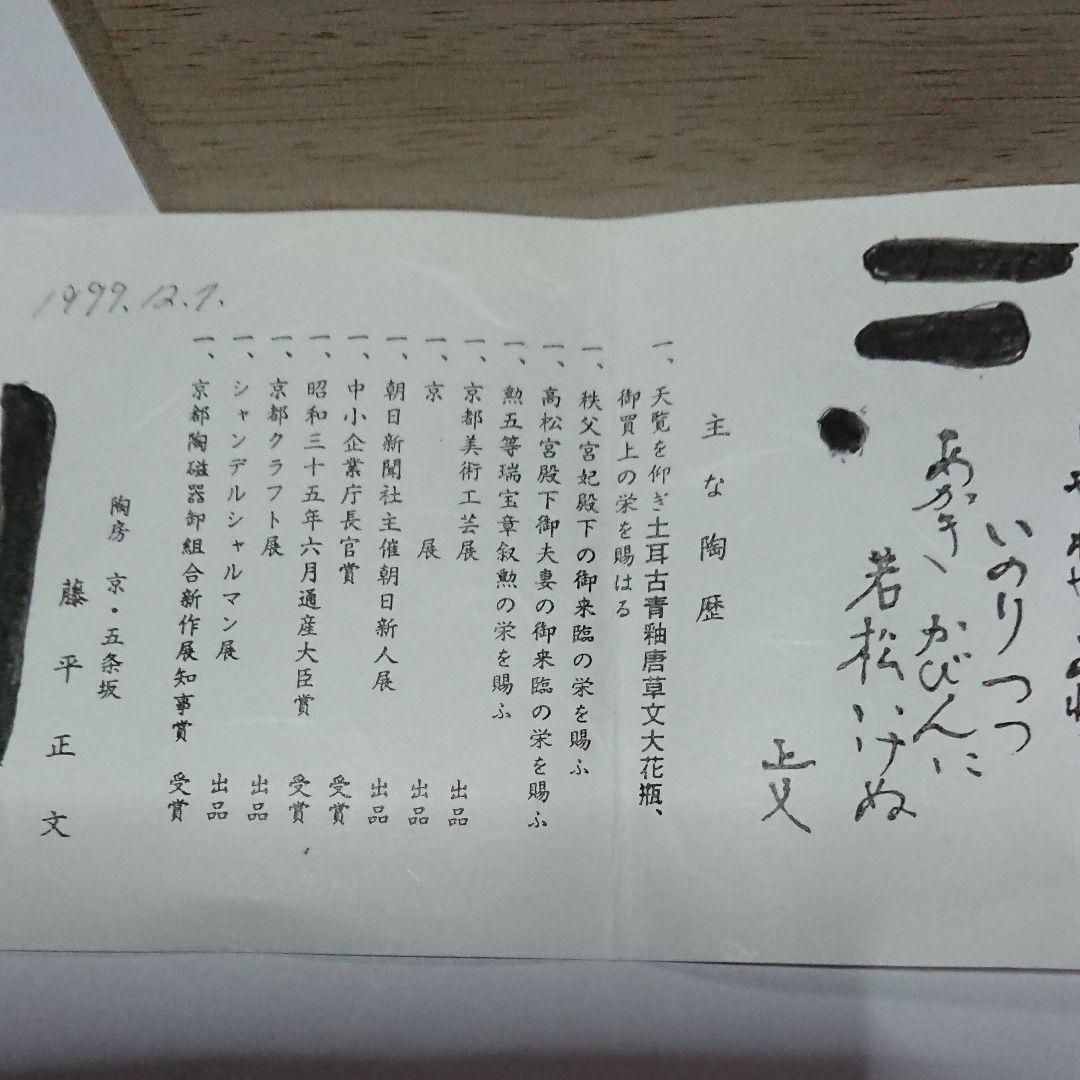 いのりつつ
あかき、かびんに
若松いけぬ
正文
主な陶歴
一、天覧を仰ぎ土耳古青釉唐草文大花瓶、
御買上の栄を賜はる
一、秩父宮妃殿下の御来臨の栄を賜ふ
一、高松宮殿下御夫妻の御来臨の栄を賜ふ
一、勲五等瑞宝章叙勲の栄を賜ふ
一、京都美術工芸展 出品
一、京展 出品
一、朝日新聞社主催朝日新人展 出品
一、中小企業庁長官賞 受賞
一、昭和三十五年六月通産大臣賞 受賞
一、京都クラフト展 出品
一、シャンデルシャルマン展 出品
一、京都陶磁器卸組合新作展知事賞 受賞
陶房 京・五条坂
藤平正文
1999.12.7.